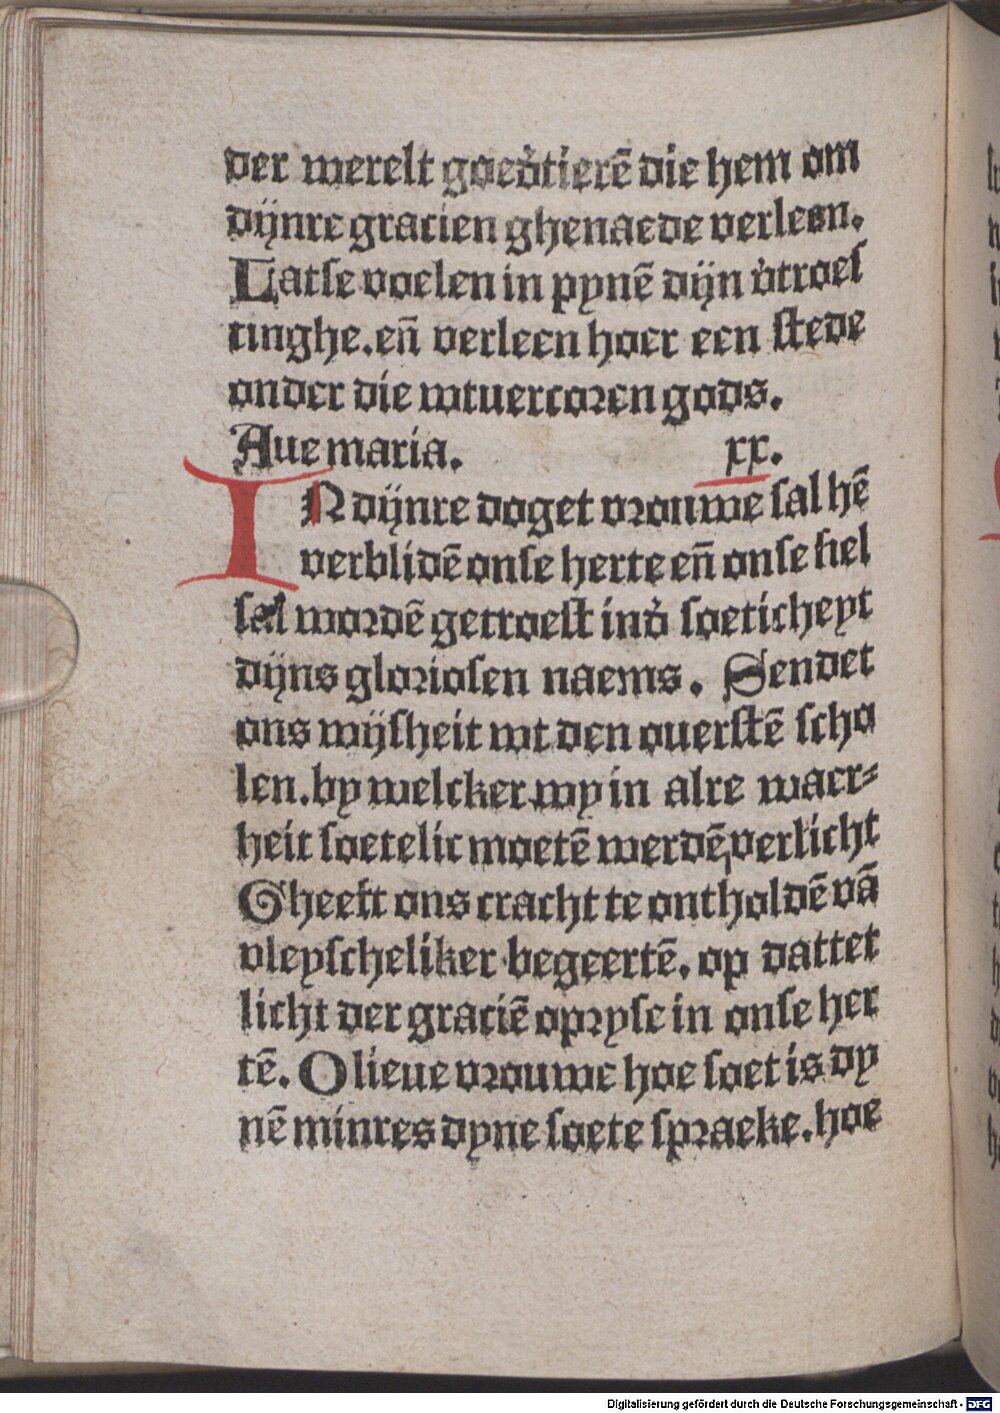 der werelt goed'tierē die hem om
dÿnre gracien ghenaede verleen.
Latſe voelen in pynē dÿn v'troeſ
tinghe. eñ verleen hoer een ſtede
onder die wtuercoꝛen gods.
Aue maria. xx.
IN dÿnre doget vꝛouwe ſal hē
verblidē onſe herte eñ onſe ſiel
ſal woꝛdē getroeſt ind' ſoeticheyt
dÿns gloꝛioſen naems. Sendet
ons wÿſheit wt den ouerſtē ſcho
len. by welcker wy in alre waer⸗
heit ſoetelic moetē werdē verlicht
Gheeft ons cracht te ontholdē vā
vleyſcheliker begeertē. op dattet
licht der graciē opꝛyſe in onſe her
tē. O lieue vꝛouwe hoe ſoet is dy
nē minres dyne ſoete ſpꝛaeke. hoe
Digitalisierung gefördert durch die Deutsche Forschungsgemeinschaft - DFG